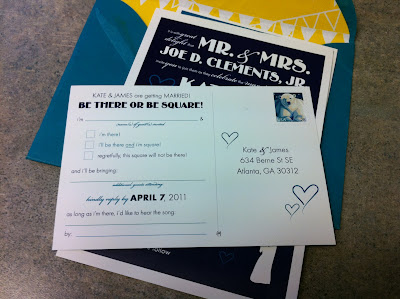 MR. & MRS.
JOE D. CLEMENTS, JR.
KATE & JAMES are getting MARRIED!
BE THERE OR BE SQUARE!
i'm &
name(s) of guest(s) invited
i'm there!
i'll be there and i'm square!
regretfully, this square will not be there!
and i'll be bringing:
additional guests attending
kindly reply by APRIL 7, 2011
as long as i'm there, I'd like to hear the song:
by:
Kate & James
634 Berne St SE
Atlanta, GA 30312
follow